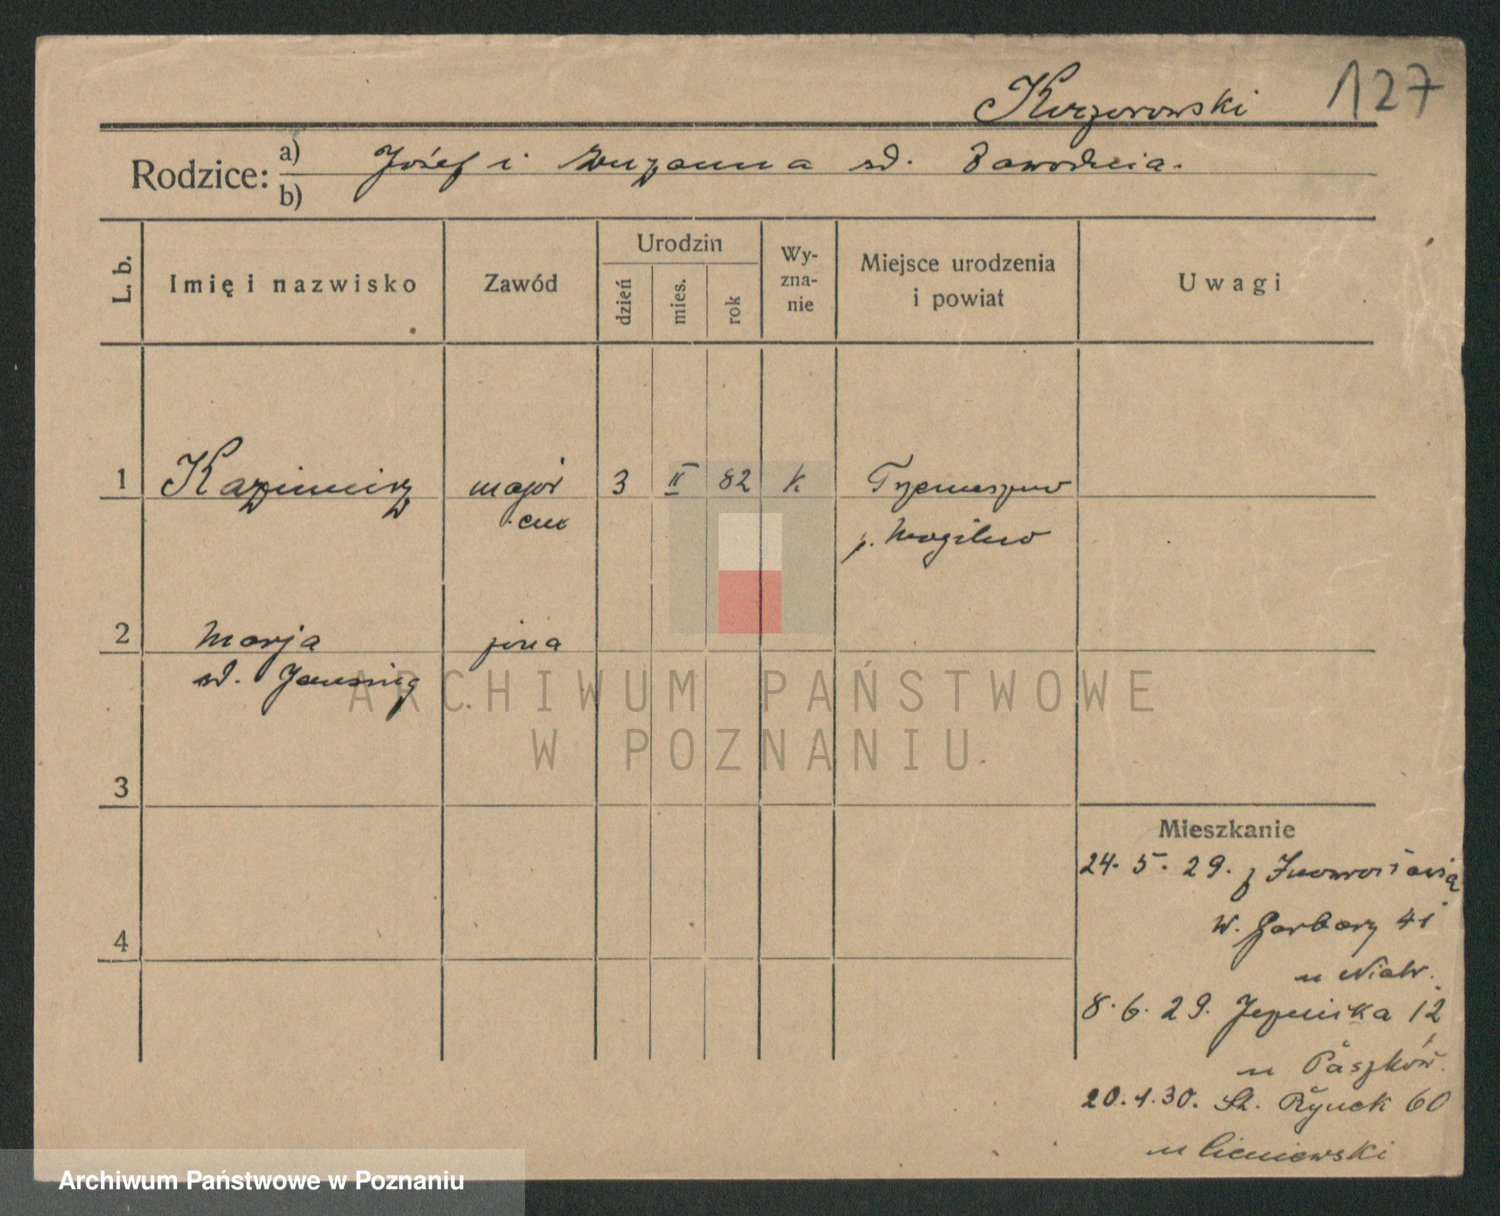 Korzorowski 127
Rodzice: a) Józef i Zuzanna sd.
b)
L. b. Imię i nazwisko Zawód Urodzin Wyznanie Miejsce urodzenia i powiat Uwagi
dzień mies. rok
1 Kazimierz major 3 II 82 k Trzemeszno
em p. Mogilno
2 Marja żona
sd. Jansing
3
4
Mieszkanie
24. 5. 29. z Inowrocławia
W. Garbary 41
u
8. 6. 29. Jezuicka 12
u Paszków.
20. 1. 30. St. Rynek 60
u Cieniewski
ARCHIWUM PAŃSTWOWE
W POZNANIU
Archiwum Państwowe w Poznaniu